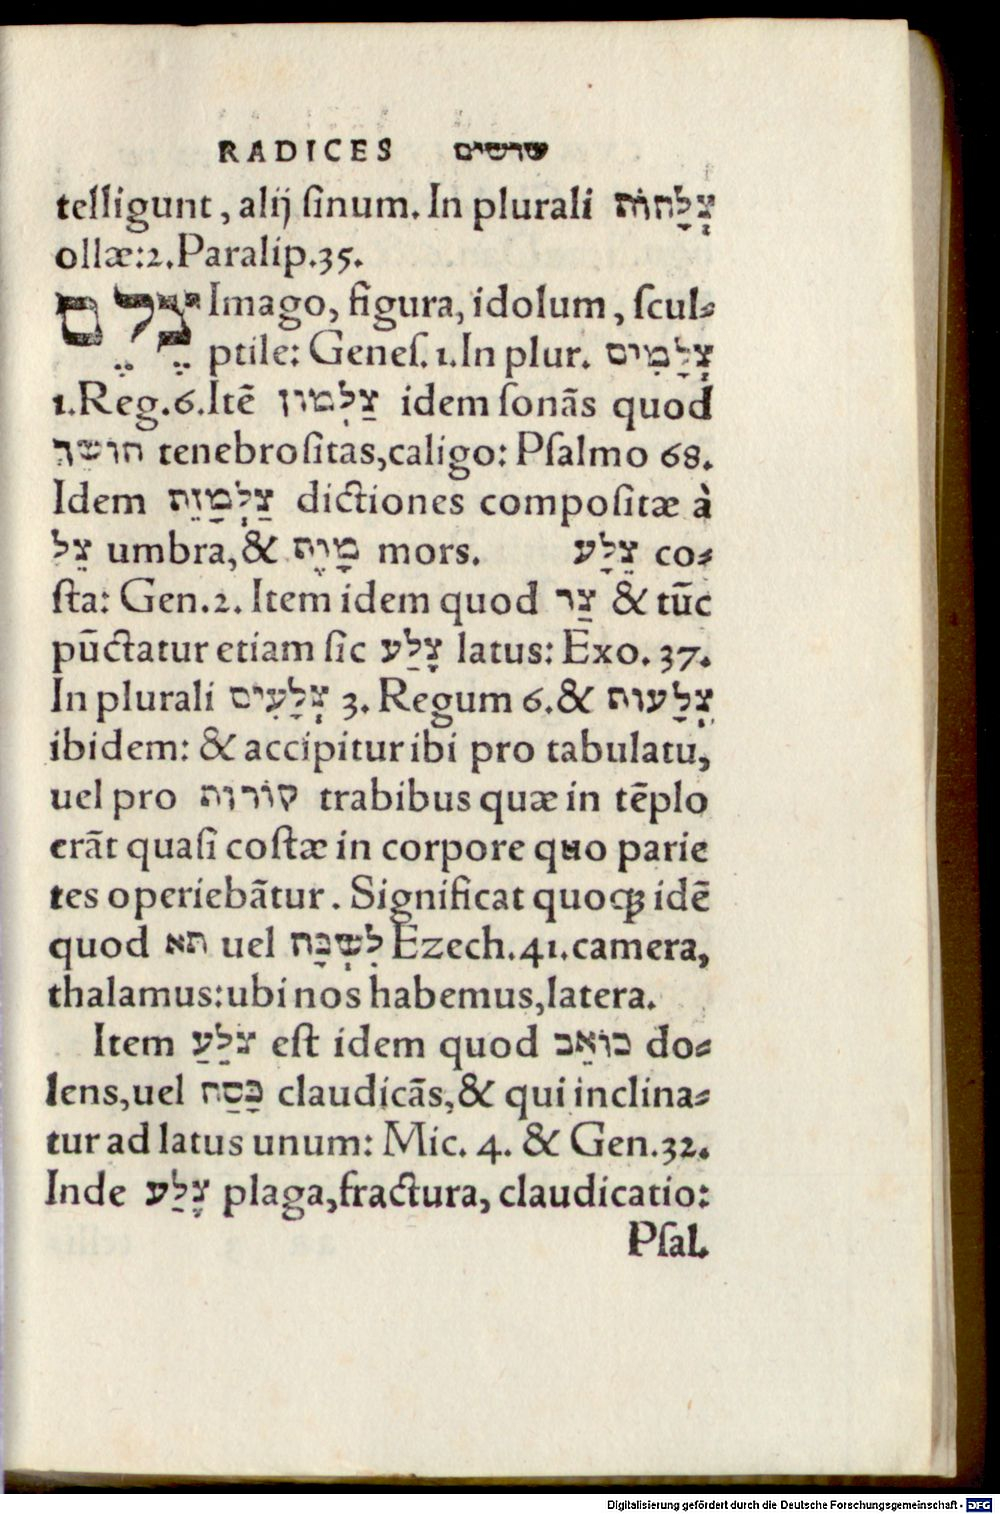 RADICES שרשים
telligunt, alij ſinum. In plurali צְלָחוֹת
ollæ: 2. Paralip. 35.
צֶלֶם Imago, figura, idolum, ſcul⸗
ptile: Geneſ. 1. In plur. צְלָמִים
1. Reg. 6. Itẽ צַלְמוֹן idem ſonãs quod
חושֶׁךְ tenebroſitas, caligo: Pſalmo 68.
Idem צַלְמָוֶת dictiones compoſitæ à
צֵל umbra, & מָוֶת mors. צֵלָע co⸗
ſta: Gen. 2. Item idem quod צַד & tũc
pũctatur etiam ſic צָלַע latus: Exo. 37.
In plurali צְלָעִים 3. Regum 6. & צְלָעוֹת
ibidem: & accipitur ibi pro tabulatu,
uel pro קוֹרוֹת trabibus quæ in tẽplo
erãt quaſi coſtæ in corpore quo parie
tes operiebãtur. Significat quoqꝫ idẽ
quod תא uel לִשְׁכָּה Ezech. 41. camera,
thalamus: ubi nos habemus, latera.
Item צֹלֵעַ eſt idem quod כוֹאֵב do⸗
lens, uel פִּסֵּחַ claudicãs, & qui inclina⸗
tur ad latus unum: Mic. 4. & Gen. 32.
Inde צָלַע plaga, fractura, claudicatio:
Pſal.
Digitalisierung gefördert durch die Deutsche Forschungsgemeinschaft - DFG